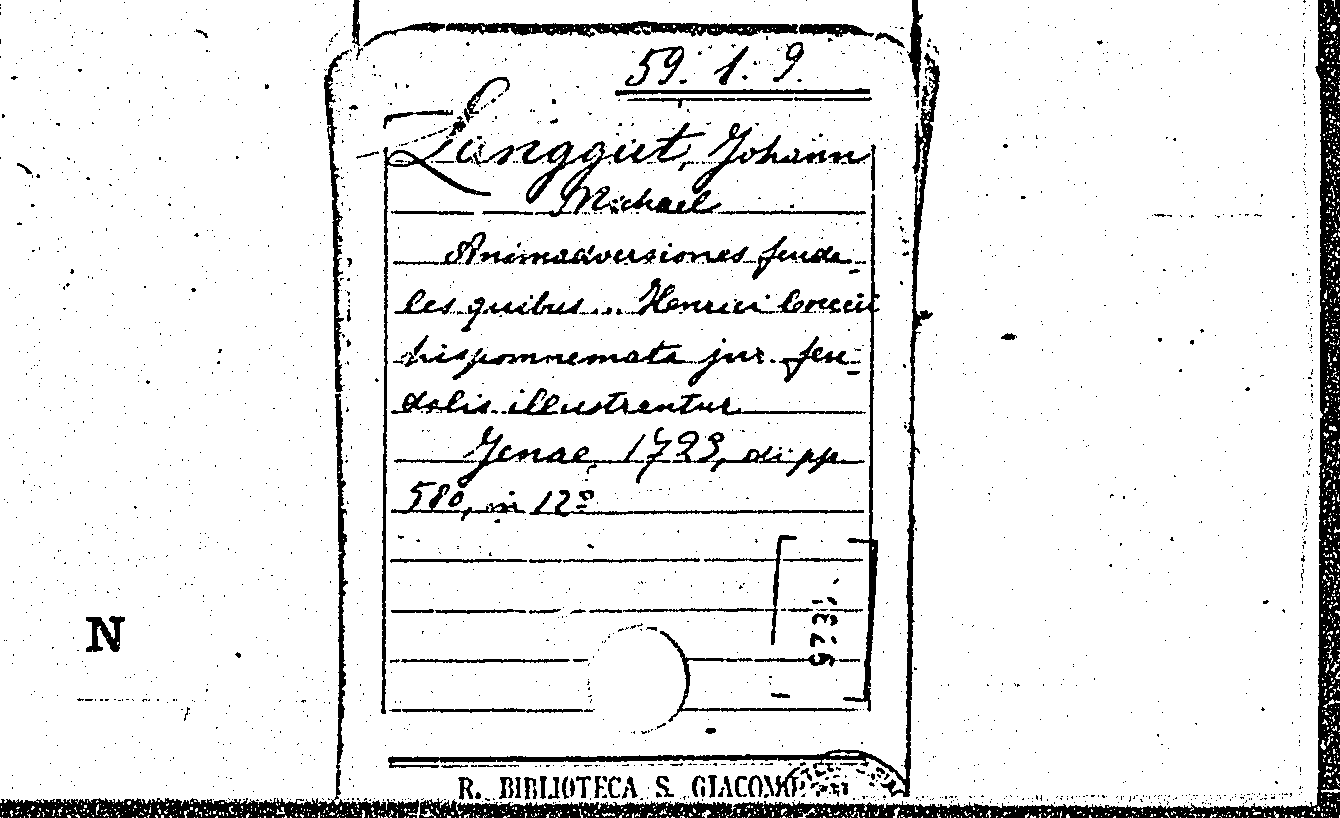 59. 1. 9.
Langgut, Johann
Michael
Animadversiones feuda-
les quibus... Henrici Cocceii
hispomnemata jur. feu-
dalis illustrantur
Jenae, 1723, di pp.
580, in 12º
973
N
R. BIBLIOTECA S. GIACOMO